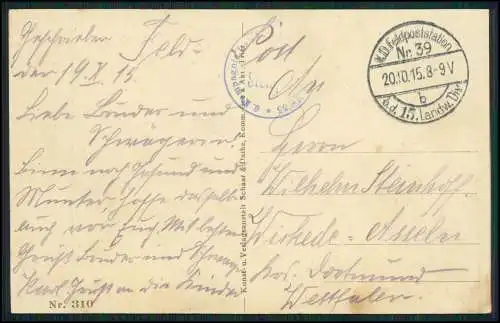 Geschrieben
den 19.X.15.
Liebe Brüder und
Schwägerin!
Binn noch gesund und
Munter, hoffe dasselbe
auch von Euch. Mit besten
Gruß Bruder und Schwager
Karl Gruß an die Kinder
Nr. 310
Kunst- u. Verlagsanstalt Schaar & Dathe, Komm.-Ges. a. Akt., Trier.
Feld-Post
An
Herrn
Wilhelm Steinhoff.
Wickede-Asseln
Krs. Dortmund
Westfalen.
K.D. Feldpoststation
Nr. 39
20.10.15. 8-9V
b
d. 15. Landw. Div.